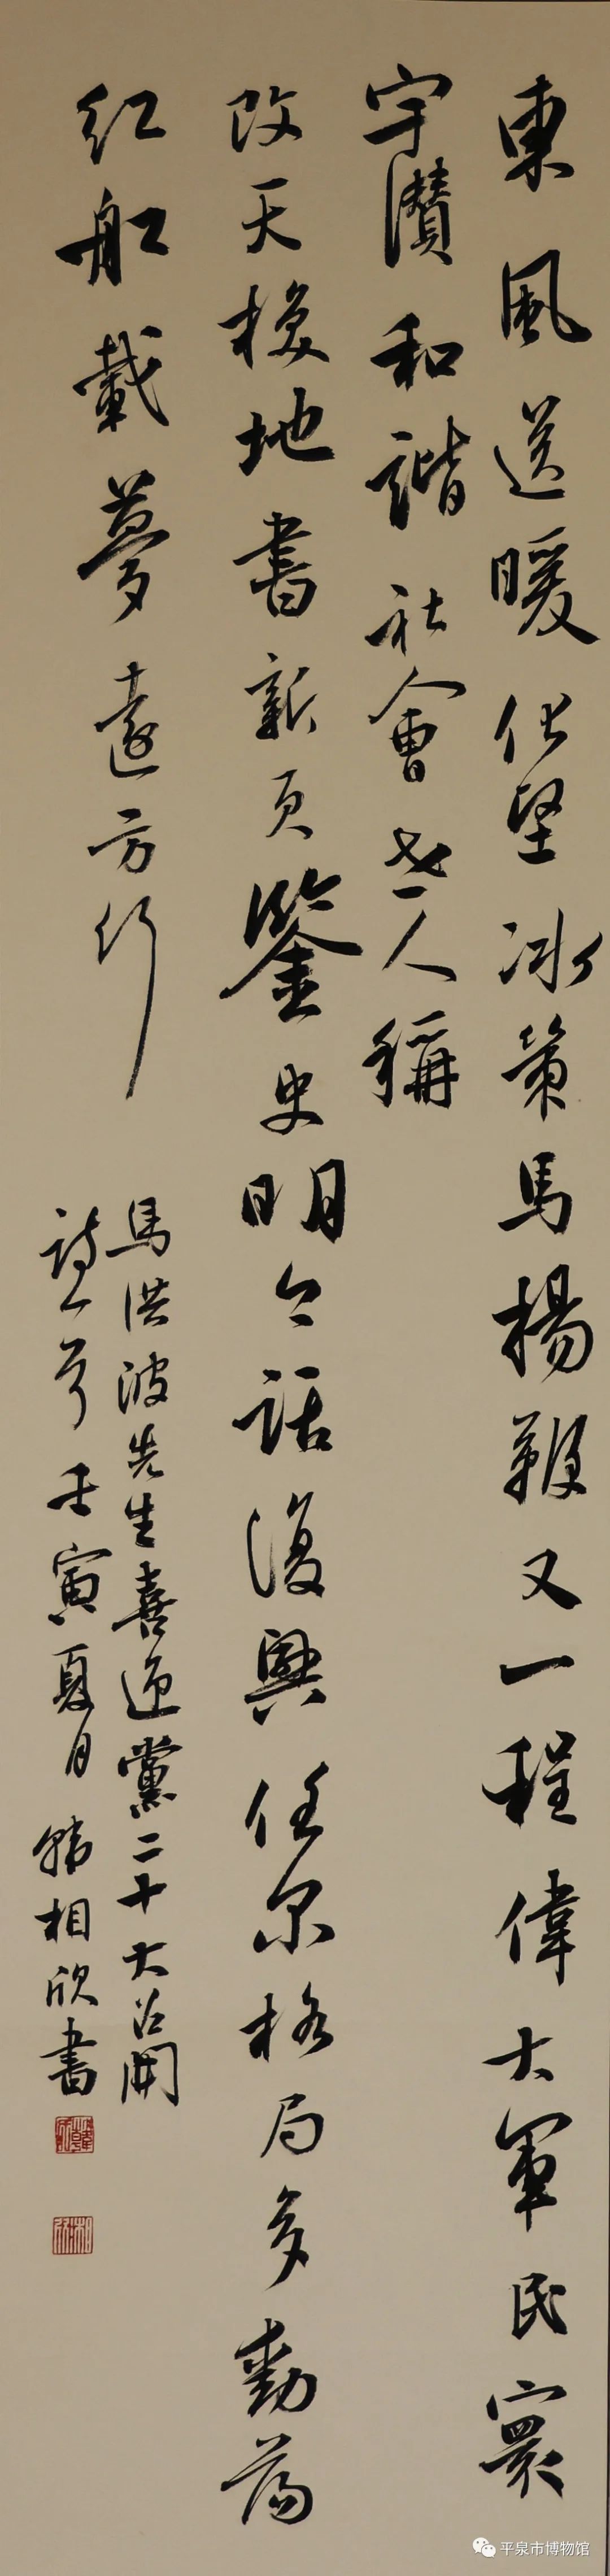 東風送暖化堅冰策馬楊鞭又一程偉大軍民寰
宇讚和諧社會世人稱
改天換地書新頁鑒史明今話復興任尔格局多動蕩
紅船載夢遠方行
馬洪波先生喜迎黨二十大召開
詩一首壬寅夏月韓相欣書
平泉市博物馆